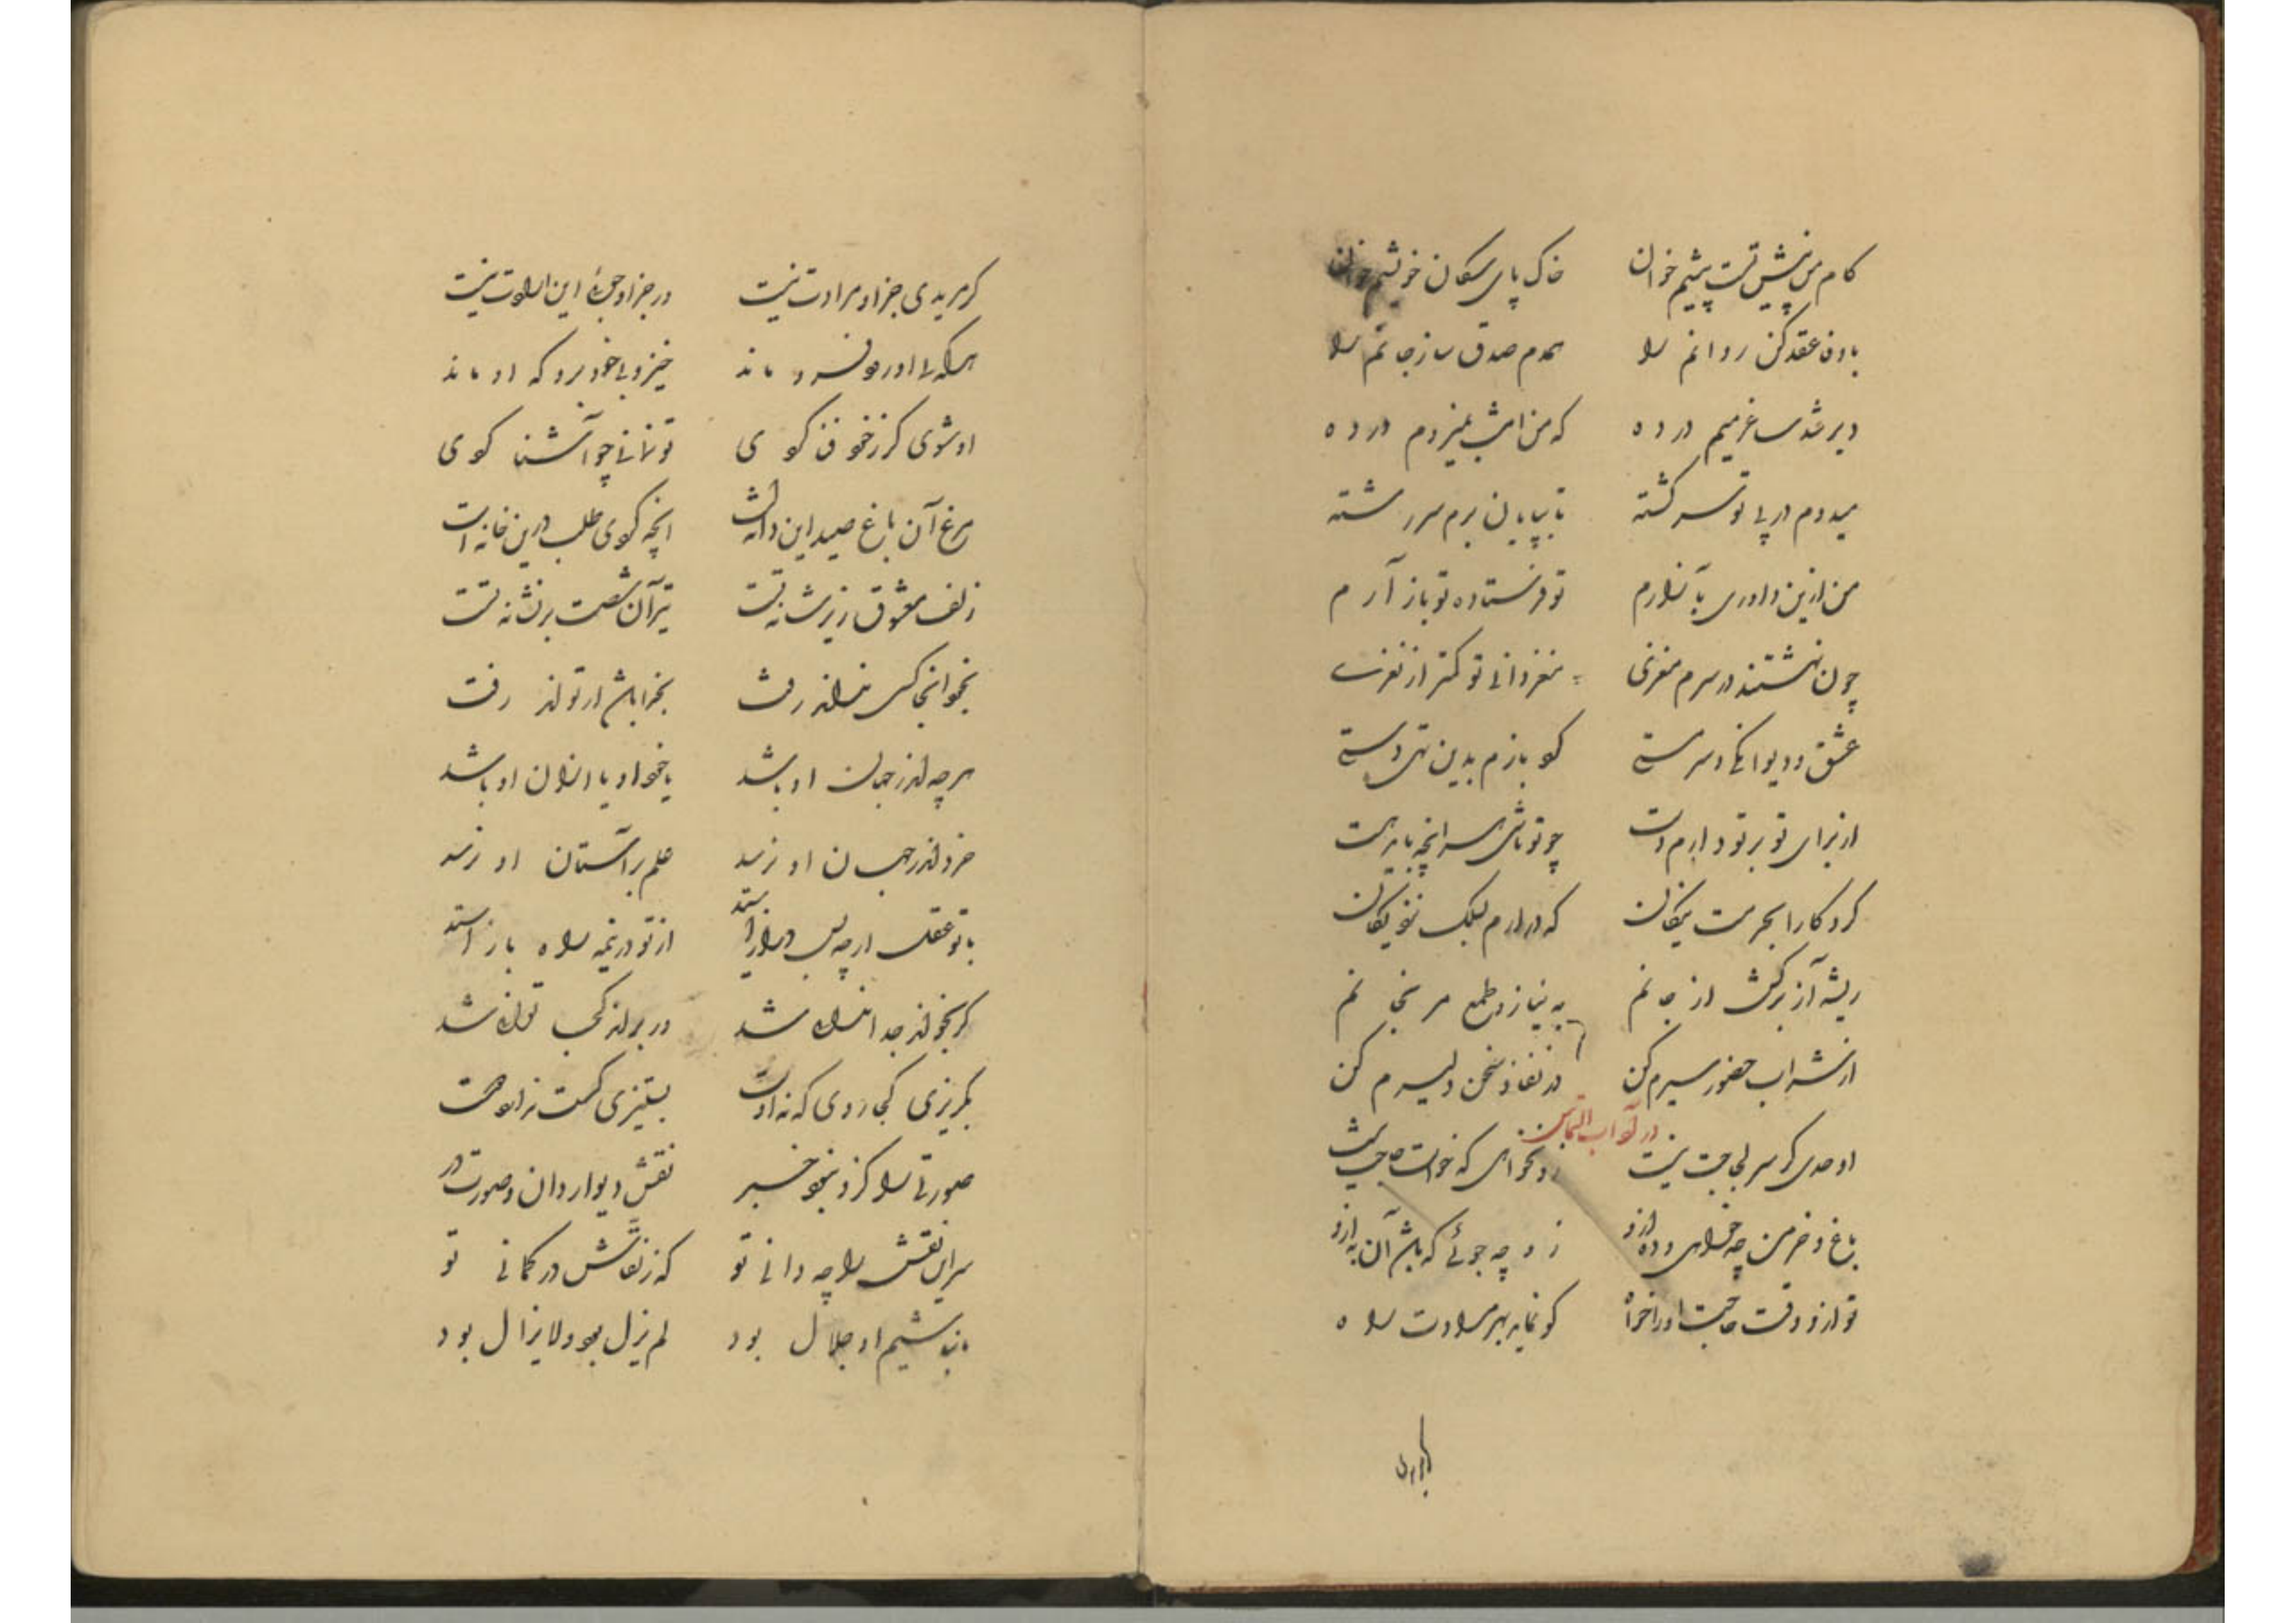 کام من پیش تست پیشم خوان خاک پای سکان خویشم خوان
عقد کن روانم را همدم صدق ساز جانم را
دیر شد ساغر میم در ده که من امشب در ده
میدوم در پی تو سر کشته تا بپایان برم سر رشته
من ازین داوری تو فرستاده تو باز آرم
چون نهشتند در سرم مغزی مغز دانی تو کمتر از نغزی
عشق و دیوانکی و سرمستی کو بازم بدین تهی دستی
از برای تو بر تو دارم دست چو تو باشی هر آنچه باید هست
کردکارا بحرمت نیکان که در آرم بسلک نزدیکان
ریشه آز برکش از جانم به نیاز و طمع مرنجانم
از شراب حضور سیرم کن در نفاذ سخن دلیرم کن
در آداب التماس
اوحدی کر سر لجاجت نیست زو نخواهی که خواست حاجت نیست
باغ و خرمن چه خواهی و ده ازو زو چه جوئی که باشد آن به ازو
تو ازو وقت حاجت او را خواه کو نماید بهر مرادت راه
کر مریدی جز او مرادت نیست ور جز او جوئی این ارادت نیست
هر که بی او رود فرو ماند خیز و بی خود برو که او ماند
او شوی کر ز خود فنا کوی تو نمانی چو آشنا کوی
مرغ آن باغ صید این دانه است آنچه کوی طلب درین خانه است
زلف معشوق زیر شانه تست تیر آن شصت بر نشانه تست
بخود آنجا کسی نداند رفت بخرا باشد ار تواند رفت
هر چه اندر جهان او باشد یا خود او یا از آن او باشد
خرد اندر جهان او نرسد علم بر آستان او نرسد
با تو عقلت ار چه بس دراز استد از تو در نیمه راه باز استد
کر بخود اندر جدا ندانی شد در بر او کجا توانی شد
بکریزی کجا روی که نه اوست بستیزی کست ندارد دوست
صورتی را کزو نبود خبر نقش دیوار دان و صورت در
سر این نقش را چه دانی تو که ز نقاش در کمانی تو
ما نباشیم او جلال بود لم یزل بود و لا یزال بود